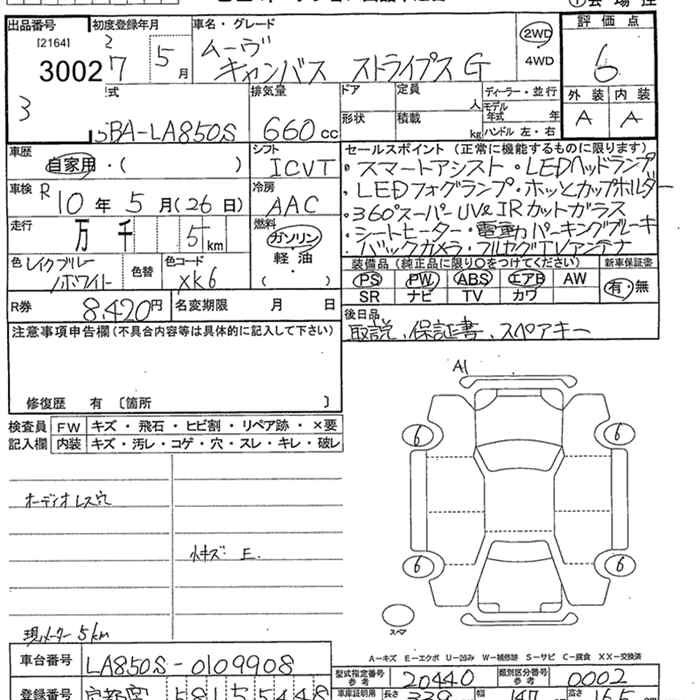 出品番号
[2164]
3002
3
初度登録年月
7 5月
車名・グレード
ムーヴ
キャンバス ストライプス G
2WD
4WD
評価点
6
外装 内装
A A
型式
5BA-LA850S
排気量
660 cc
ドア
形状
定員
人
積載
kg
ディーラー・並行
モデル年式 年
ハンドル 左・右
車歴
自家用・( )
シフト
ICVT
車検
R10年5月(26日)
冷房
AAC
走行
万 千 5km
燃料
ガソリン
軽・油
( )
色
レイクブルー
/ホワイト
色替
色コード
XK6
R券
8,420円
名変期限 月 日
セールスポイント (正常に機能するものに限ります)
・スマートアシスト・LEDヘッドランプ
・LEDフォグランプ・ホッとカップホルダー
・360°スーパーUV&IRカットガラス
・シートヒーター・電動パーキングブレーキ
・バックカメラ・フルセグTVアンテナ
装備品 (純正品に限り○をつけてください)
新車保証書
PS PW ABS エアB AW
有・無
SR ナビ TV カワ
後日品
取説、保証書、スペアキー
注意事項申告欄(不具合内容等は具体的に記入して下さい)
修復歴 有 〔箇所
検査員
記入欄
FW キズ・飛石・ヒビ割・リペア跡・×要
内装 キズ・汚レ・コゲ・穴・スレ・キレ・破レ
オーディオレス穴
小キズ: E.
現メーター5km
A1
6 6
6 6
スペア
A-キズ E-エクボ U-凹み W-補修跡 S-サビ C-腐食 XX-交換済
車台番号
LA850S-0109908
型式指定番号
参考
20440
類別区分番号
参考
0002
登録番号
車庫証明用
長さ
幅
高さ